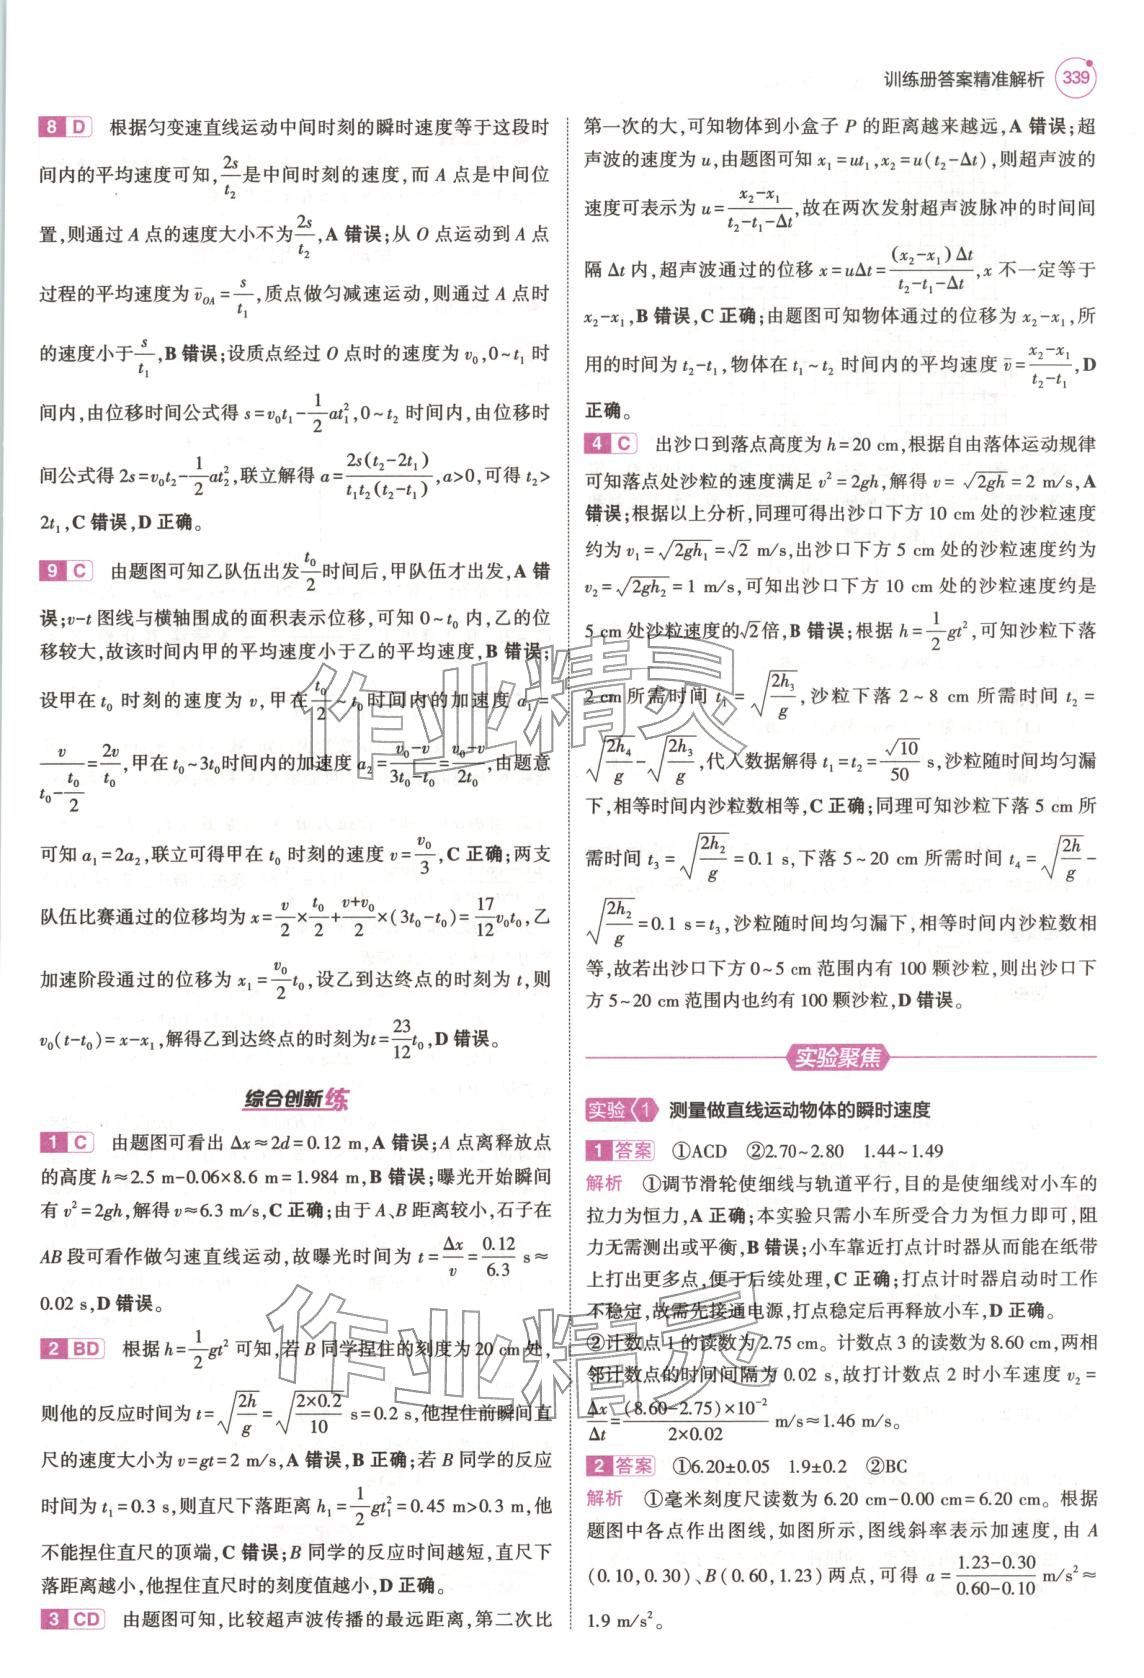 训练册答案精准解析 339
8 D 根据匀变速直线运动中间时刻的瞬时速度等于这段时
间内的平均速度可知,2s/t₂是中间时刻的速度,而 A 点是中间位
置,则通过 A 点的速度大小不为2s/t₂,A 错误;从 O 点运动到 A 点
过程的平均速度为 v̄_OA=s/t₁,质点做匀减速运动,则通过 A 点时
的速度小于s/t₁,B 错误;设质点经过 O 点时的速度为 v₀,0~t₁ 时
间内,由位移时间公式得 s=v₀t₁-1/2at₁²,0~t₂ 时间内,由位移时
间公式得 2s=v₀t₂-1/2at₂²,联立解得 a=2s(t₂-2t₁)/t₁t₂(t₂-t₁),a>0,可得 t₂>
2t₁,C 错误,D 正确。
9 C 由题图可知乙队伍出发t₀/2时间后,甲队伍才出发,A 错
误;v-t 图线与横轴围成的面积表示位移,可知 0~t₀ 内,乙的位
移较大,故该时间内甲的平均速度小于乙的平均速度,B 错误;
设甲在 t₀ 时刻的速度为 v,甲在t₀/2~t₀时间内的加速度 a₁=
v/(t₀-t₀/2)=2v/t₀,甲在 t₀~3t₀时间内的加速度 a₂=(v₀-v)/(3t₀-t₀)=(v₀-v)/2t₀,由题意
可知 a₁=2a₂,联立可得甲在 t₀ 时刻的速度 v=v₀/3,C 正确;两支
队伍比赛通过的位移均为 x=v/2×t₀/2+(v+v₀)/2×(3t₀-t₀)=17/12v₀t₀,乙
加速阶段通过的位移为 x₁=v₀/2t₀,设乙到达终点的时刻为 t,则
v₀(t-t₀)=x-x₁,解得乙到达终点的时刻为t=23/12t₀,D 错误。
综合创新练
1 C 由题图可看出 Δx≈2d=0.12 m,A 错误;A 点离释放点
的高度 h≈2.5 m-0.06×8.6 m=1.984 m,B 错误;曝光开始瞬间
有 v²=2gh,解得 v≈6.3 m/s,C 正确;由于 A、B 距离较小,石子在
AB 段可看作做匀速直线运动,故曝光时间为 t=Δx/v=0.12/6.3 s≈
0.02 s,D 错误。
2 BD 根据 h=1/2gt² 可知,若 B 同学捏住的刻度为 20 cm 处,
则他的反应时间为 t=√(2h/g)=√(2×0.2/10) s=0.2 s,他捏住前瞬间直
尺的速度大小为 v=gt=2 m/s,A 错误,B 正确;若 B 同学的反应
时间为 t₁=0.3 s,则直尺下落距离 h₁=1/2gt₁²=0.45 m>0.3 m,他
不能捏住直尺的顶端,C 错误;B 同学的反应时间越短,直尺下
落距离越小,他捏住直尺时的刻度值越小,D 正确。
3 CD 由题图可知,比较超声波传播的最远距离,第二次比
第一次的大,可知物体到小盒子 P 的距离越来越远,A 错误;超
声波的速度为 u,由题图可知 x₁=ut₁,x₂=u(t₂-Δt),则超声波的
速度可表示为 u=(x₂-x₁)/(t₂-t₁-Δt),故在两次发射超声波脉冲的时间间
隔 Δt 内,超声波通过的位移 x=uΔt=(x₂-x₁)Δt/(t₂-t₁-Δt),x 不一定等于
x₂-x₁,B 错误,C 正确;由题图可知物体通过的位移为 x₂-x₁,所
用的时间为 t₂-t₁,物体在 t₁~t₂ 时间内的平均速度 v̄=(x₂-x₁)/(t₂-t₁),D
正确。
4 C 出沙口到落点高度为 h=20 cm,根据自由落体运动规律
可知落点处沙粒的速度满足 v²=2gh,解得 v=√2gh=2 m/s,A
错误;根据以上分析,同理可得出沙口下方 10 cm 处的沙粒速度
约为 v₁=√2gh₁=√2 m/s,出沙口下方 5 cm 处的沙粒速度约为
v₂=√2gh₂=1 m/s,可知出沙口下方 10 cm 处的沙粒速度约是
5 cm 处沙粒速度的√2倍,B 错误;根据 h=1/2gt²,可知沙粒下落
2 cm 所需时间 t₁=√(2h₃/g),沙粒下落 2~8 cm 所需时间 t₂=
√(2h₄/g)-√(2h₃/g),代入数据解得 t₁=t₂=√10/50 s,沙粒随时间均匀漏
下,相等时间内沙粒数相等,C 正确;同理可知沙粒下落 5 cm 所
需时间 t₃=√(2h₂/g)=0.1 s,下落 5~20 cm 所需时间 t₄=√(2h/g)-
√(2h₂/g)=0.1 s=t₃,沙粒随时间均匀漏下,相等时间内沙粒数相
等,故若出沙口下方 0~5 cm 范围内有 100 颗沙粒,则出沙口下
方 5~20 cm 范围内也约有 100 颗沙粒,D 错误。
实验聚焦
实验 1 测量做直线运动物体的瞬时速度
1 答案 ①ACD ②2.70~2.80 1.44~1.49
解析 ①调节滑轮使细线与轨道平行,目的是使细线对小车的
拉力为恒力,A 正确;本实验只需小车所受合力为恒力即可,阻
力无需测出或平衡,B 错误;小车靠近打点计时器从而能在纸带
上打出更多点,便于后续处理,C 正确;打点计时器启动时工作
不稳定,故需先接通电源,打点稳定后再释放小车,D 正确。
②计数点 1 的读数为 2.75 cm。计数点 3 的读数为 8.60 cm,两相
邻计数点的时间间隔为 0.02 s,故打计数点 2 时小车速度 v₂=
Δx/Δt=(8.60-2.75)×10⁻²/(2×0.02) m/s≈1.46 m/s。
2 答案 ①6.20±0.05 1.9±0.2 ②BC
解析 ①毫米刻度尺读数为 6.20 cm-0.00 cm=6.20 cm。根据
题图中各点作出图线,如图所示,图线斜率表示加速度,由 A
(0.10,0.30)、B(0.60,1.23)两点,可得 a=(1.23-0.30)/(0.60-0.10) m/s²≈
1.9 m/s²。
作业精灵
作业精灵